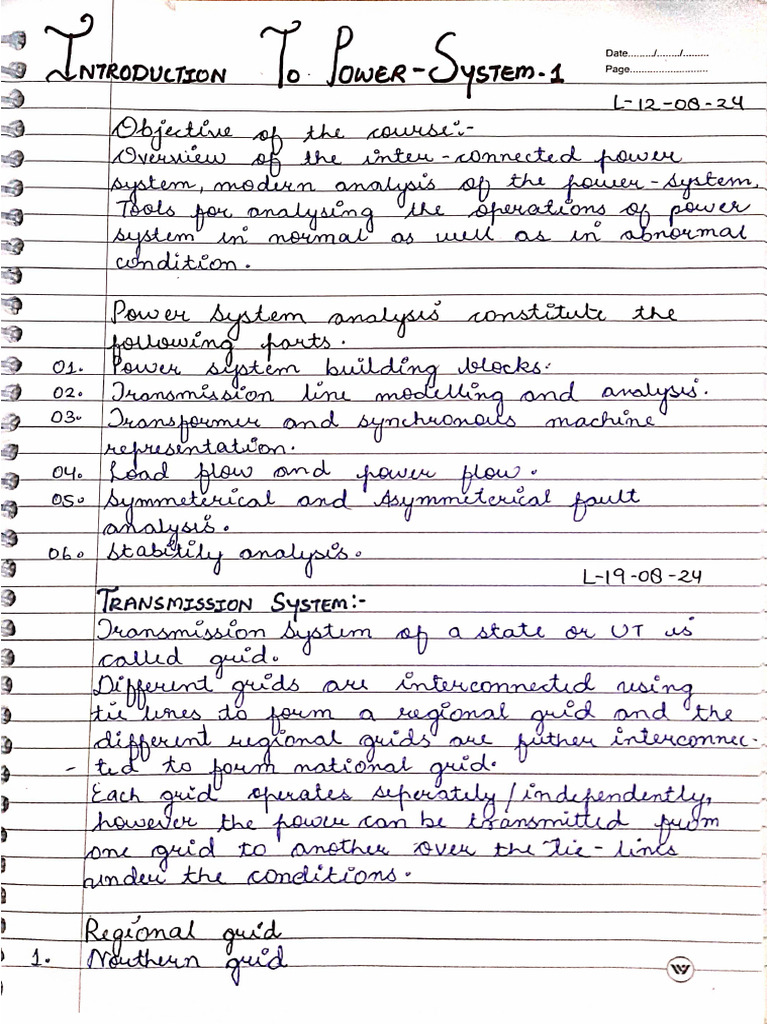 INTRODUCTION TO POWER-SYSTEM-1
Date........./......../.........
Page...........................
L-12-08-24
Objective of the course:-
Overview of the inter-connected power
system, modern analysis of the power-system,
Tools for analysing the operations of power
system in normal as well as in abnormal
condition.
Power system analysis constitute the
following parts.
01. Power system building blocks.
02. Transmission line modelling and analysis.
03. Transformer and synchronous machine
representation.
04. Load flow and power flow.
05. Symmeterical and Asymmeterical fault
analysis.
06. Stability analysis.
L-19-08-24
TRANSMISSION SYSTEM:-
Transmission system of a state or UT is
called grid.
Different grids are interconnected using
tie lines to form a regional grid and the
different regional grids are futher interconnec-
- ted to form national grid.
Each grid operates seperately/independently,
however the power can be transmitted from
one grid to another over the Tie-lines
under the conditions.
Regional grid
1. Nouthern grid
W